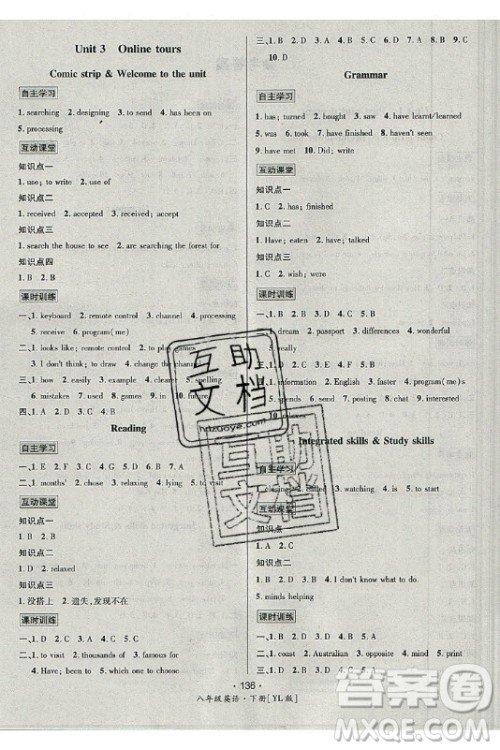 Unit 3 Online tours
Comic strip & Welcome to the unit
自主学习
1. searching 2. designing 3. to send 4. has changed
5. processing
互动课堂
知识点一
1. use; to write 2. use of
知识点二
1. received 2. accepted 3. received
知识点三
1. search the house to see 2. are searching the forest for
知识点四
1. B 2. B
课时训练
一、1. keyboard 2. remote control 3. channel 4. processing
5. receive 6. program(me)
二、1. looks like 2. remote control
3. I don't think; to draw 4. to play games
三、1. been 2. screen 3. clearer 4. 5. spelling
6. mistakes 7. used 8. 9. 10. future
四、1. A 2. C 3. D 4. B 5.
Reading
自主学习
一、1. D 2. C 3. B 4. A
二、1. months' 2. called 3. yourself 4. lying 5. to visit
互动课堂
知识点一
1. D 2. relaxed
知识点二
1. C 2. D
知识点三
1. 没搭上 2. 遗失,发现不在
课时训练
一、1. D 2. A 3. B 4. A 5. C
二、1. to thousands of 2. famous for
3. at the end of 4. wide; across from
5. Have; been; in your dreams
三、1. C 2. D 3. A 4. D 5. C 6. B 7. A 8. B 9. C
10. D
Grammar
自主学习
1. has; turned 2. bought 3. saw 4. have learnt/learned
5. was 6. took 7. have finished 8. haven't seen
9. have met 10. Did; write
互动课堂
知识点一
1. C 2. has; finished
知识点二
1. Have; eaten 2. have; talked
知识点三
1. D 2. A
课时训练
1. dream 2. passport 3. differences 4. wonderful
5. really
1. information 2. English 3. faster 4. program(me)
5. send 6. on 7. by 8. print 9. chat
Integrated skills & Study skills
自主学习
3. watching 4. starts 5. in
互动课堂
知识点一
1. A 2. C
知识点二
1. D 2. A 3. I don't know what to do.
知识点三
2. minds helping
课时训练
一、1. C 2. B 3. A 4. A 5. D
· 136 ·
八年级英语·下册[YL版]
互助文档
hdzuoye.com
互助文档
答案圈
MXQE.COM